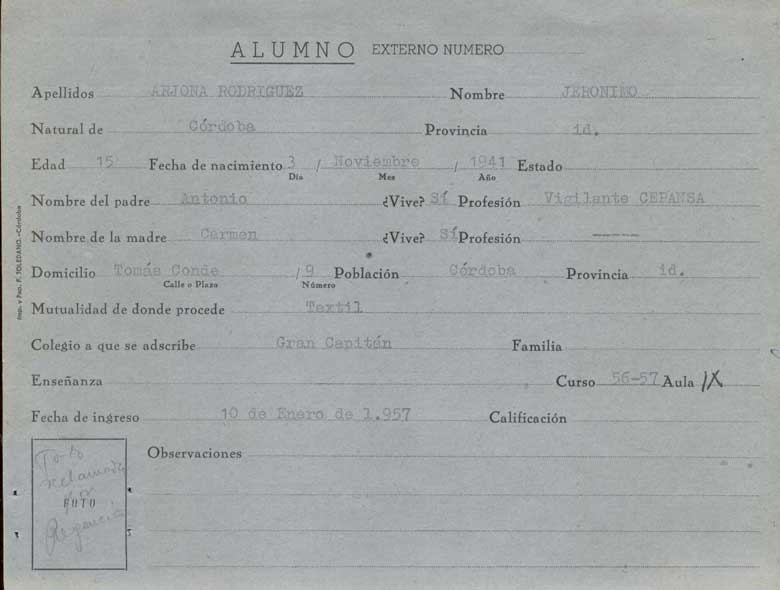 ALUMNO EXTERNO NUMERO
Apellidos ARJONA RODRIGUEZ Nombre JERONIMO
Natural de Córdoba Provincia id.
Edad 15 Fecha de nacimiento 3 / Noviembre / 1941 Estado
Día Mes Año
Nombre del padre Antonio ¿Vive? Sí Profesión Vigilante CEPANSA
Nombre de la madre Carmen ¿Vive? Sí Profesión -----
Domicilio Tomás Conde / 9 Población Córdoba Provincia id.
Calle o Plaza Número
Mutualidad de donde procede Textil
Colegio a que se adscribe Gran Capitán Familia
Enseñanza Curso 56-57 Aula IX
Fecha de ingreso 10 de Enero de 1.957 Calificación
Observaciones
Foto
reclamada
por
FOTO
Regencia
Imp. y Pap. F. TOLEDANO.-Córdoba